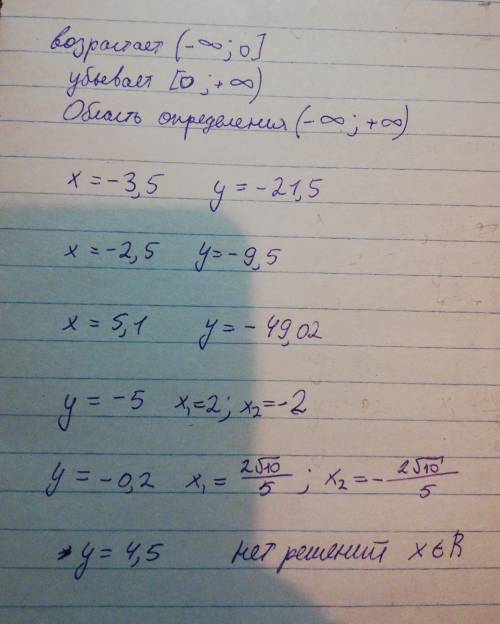 возрастает (-∞; 0]
убывает [0; +∞)
Область определения (-∞; +∞)
x = -3,5 y = -21,5
x = -2,5 y = -9,5
x = 5,1 y = -49,02
y = -5 x₁=2; x₂=-2
y = -0,2 x₁ = 2√10/5 ; x₂ = -2√10/5
y = 4,5 нет решений x ∈ R